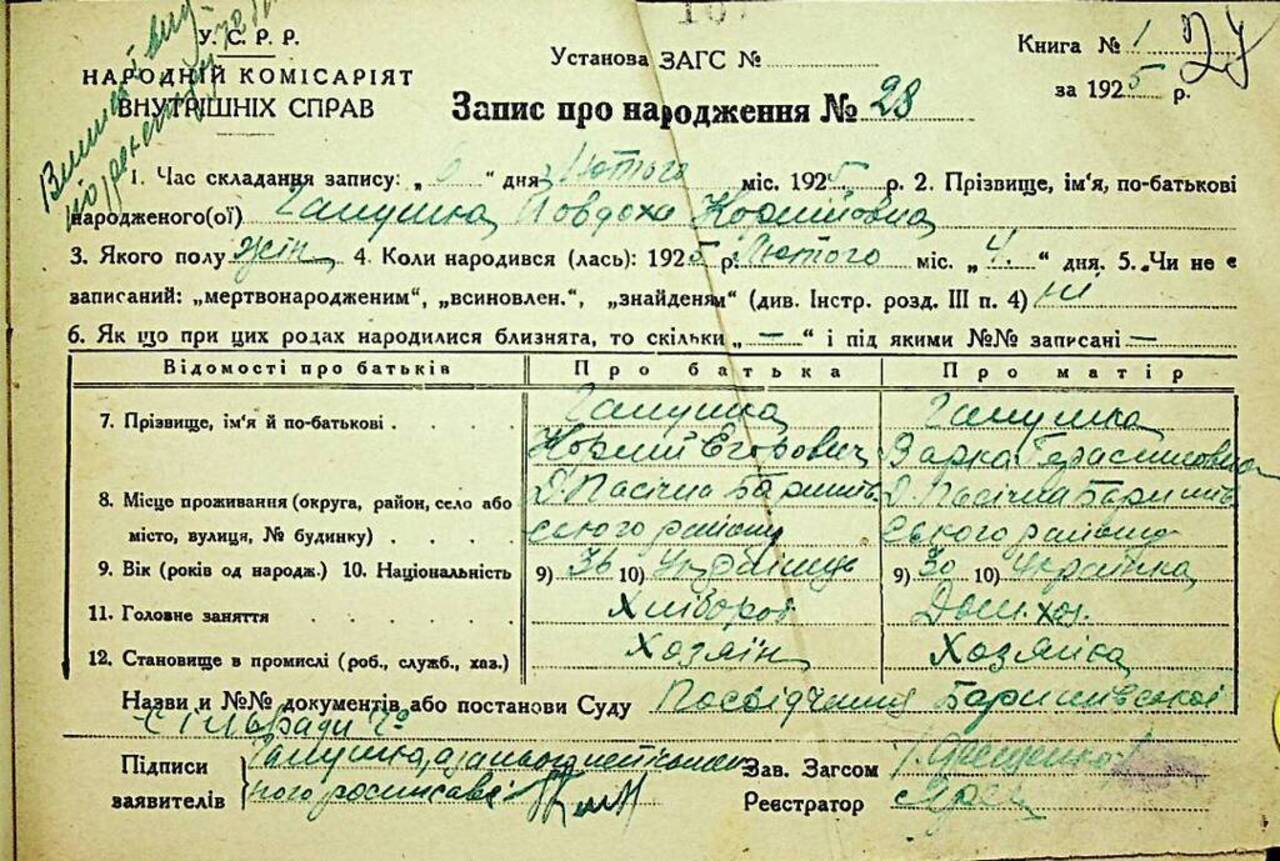 У.С.Р.Р.
НАРОДНІЙ КОМІСАРІЯТ
ВНУТРІШНІХ СПРАВ
Установа ЗАГС №
Книга № 1
24
за 1925 р.
Запис про народження № 28
1. Час складання запису: „6“ дня Лютого міс. 1925 р. 2. Прізвище, ім'я, по-батькові
народженого(ої) Галушка Явдоха Корніївна
3. Якого полу жін 4. Коли народився (лась): 1925 р. Лютого міс. „4.“ дня. 5. Чи не є
записаний: „мертвонародженим“, „всиновлен.“, „знайденям“ (див. Інстр. розд. III п. 4) ні
6. Як що при цих родах народилися близнята, то скільки „—“ і під якими №№ записані —
Відомості про батьків Про батька Про матір
7. Прізвище, ім'я й по-батькові Галушка Галушка
Корній Єгорович Варка Герасимовна
8. Місце проживання (округа, район, село або Д. Пасічна Баришів Д. Пасічна Баришів
місто, вулиця, № будинку) ського району ського району
9. Вік (років од народж.) 10. Національність 9) 36 10) Українець 9) 30 10) Українка
11. Головне заняття Хлібороб Дом. хоз.
12. Становище в промислі (роб., служб., хаз.) Хозяїн Хозяйка
Назви и №№ документів або постанови Суду Посвідчення Баришівської
сільради
Підписи Галушка, а за нього неписьмен Зав. Загсом
заявителів ного росписавсь Реєстратор